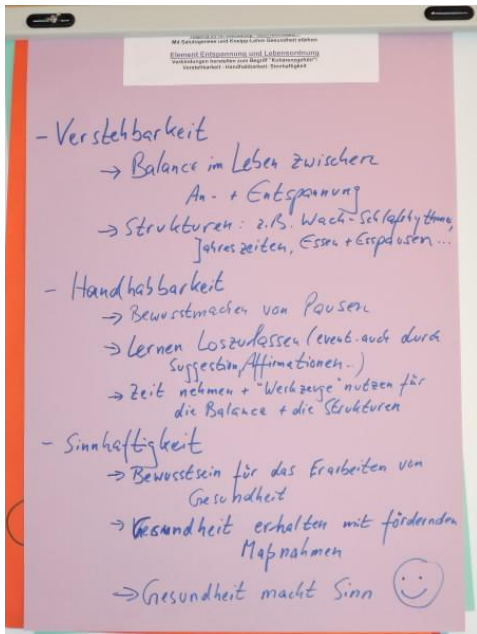 Mit Salutogenese und Kneipp Leben Gesundheit stärken
Element Entspannung und Lebensordnung
Verbindungen herstellen zum Begriff "Kohärenzgefühl":
Verstehbarkeit - Handhabbarkeit - Sinnhaftigkeit
- Verstehbarkeit
→ Balance im Leben zwischen
An- + Entspannung
→ Strukturen: z.B. Wach-Schlafrhythmus,
Jahreszeiten, Essen + Esspausen...
- Handhabbarkeit
→ Bewusstmachen von Pausen
→ Lernen Loszulassen (event. auch durch
Suggestion, Affirmationen..)
→ Zeit nehmen + "Werkzeuge" nutzen für
die Balance + die Strukturen
- Sinnhaftigkeit
→ Bewusstsein für das Erarbeiten von
Gesundheit
→ Gesundheit erhalten mit fördernden
Maßnahmen
→ Gesundheit macht Sinn